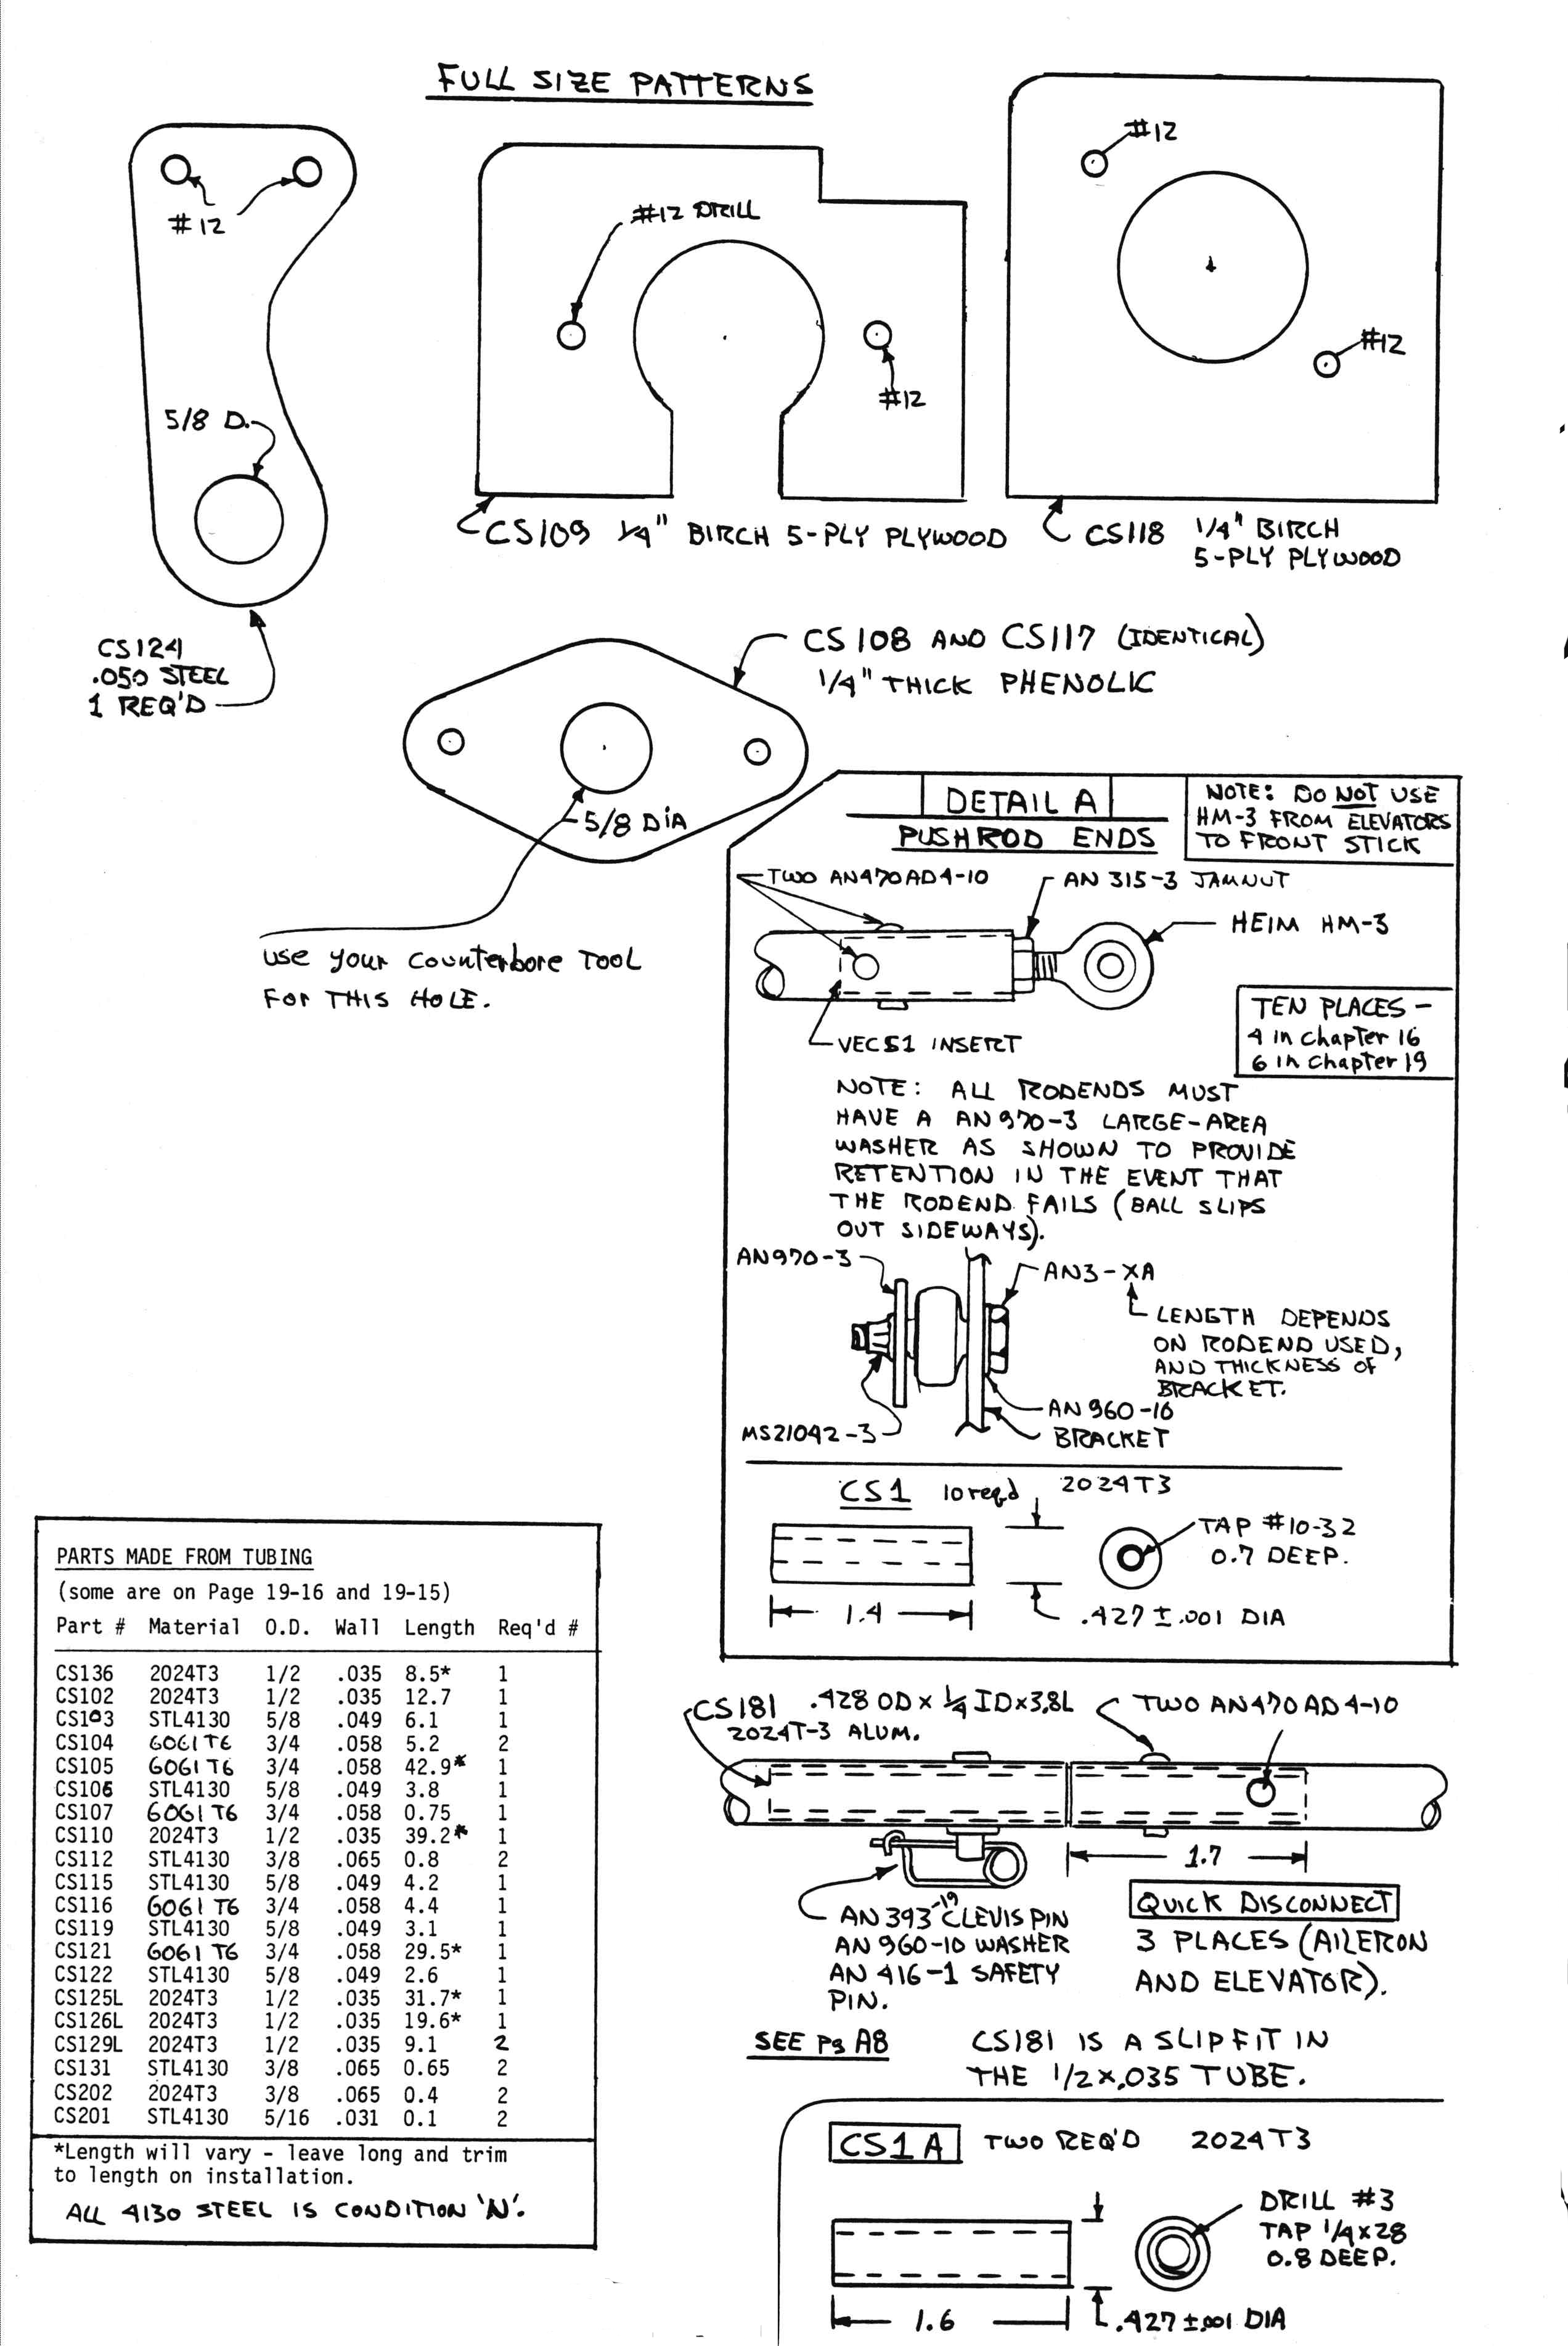 FULL SIZE PATTERNS
#12
#12 DRILL
#12
#12
#12
5/8 D.
CS109 1/4" BIRCH 5-PLY PLYWOOD
CS118 1/4" BIRCH
5-PLY PLYWOOD
#12
CS124
.050 STEEL
1 REQ'D
CS108 AND CS117 (IDENTICAL)
1/4" THICK PHENOLIC
5/8 DIA
use your counterbore TOOL
FOR THIS HOLE.
DETAIL A
PUSHROD ENDS
NOTE: DO NOT USE
HM-3 FROM ELEVATORS
TO FRONT STICK
TWO AN470AD4-10
AN 315-3 JAMNUT
HEIM HM-3
VECS1 INSERT
TEN PLACES -
4 in chapter 16
6 in chapter 19
NOTE: ALL RODENDS MUST
HAVE A AN970-3 LARGE-AREA
WASHER AS SHOWN TO PROVIDE
RETENTION IN THE EVENT THAT
THE RODEND FAILS (BALL SLIPS
OUT SIDEWAYS).
AN970-3
AN3-XA
LENGTH DEPENDS
ON RODEND USED,
AND THICKNESS OF
BRACKET.
AN960-10
BRACKET
MS21042-3
CS1 10 req'd 2024T3
TAP #10-32
0.7 DEEP.
1.4
.427 ±.001 DIA
PARTS MADE FROM TUBING
(some are on Page 19-16 and 19-15)
Part # Material O.D. Wall Length Req'd #
CS136 2024T3 1/2 .035 8.5* 1
CS102 2024T3 1/2 .035 12.7 1
CS103 STL4130 5/8 .049 6.1 1
CS104 6061T6 3/4 .058 5.2 2
CS105 6061T6 3/4 .058 42.9* 1
CS106 STL4130 5/8 .049 3.8 1
CS107 6061T6 3/4 .058 0.75 1
CS110 2024T3 1/2 .035 39.2* 1
CS112 STL4130 3/8 .065 0.8 2
CS115 STL4130 5/8 .049 4.2 1
CS116 6061T6 3/4 .058 4.4 1
CS119 STL4130 5/8 .049 3.1 1
CS121 6061T6 3/4 .058 29.5* 1
CS122 STL4130 5/8 .049 2.6 1
CS125L 2024T3 1/2 .035 31.7* 1
CS126L 2024T3 1/2 .035 19.6* 1
CS129L 2024T3 1/2 .035 9.1 2
CS131 STL4130 3/8 .065 0.65 2
CS202 2024T3 3/8 .065 0.4 2
CS201 STL4130 5/16 .031 0.1 2
*Length will vary - leave long and trim
to length on installation.
ALL 4130 STEEL IS CONDITION 'N'.
CS181 .428 OD x 1/4 ID x 3.8L
2024T-3 ALUM.
TWO AN470AD4-10
1.7
AN393-19 CLEVIS PIN
AN960-10 WASHER
AN 416-1 SAFETY
PIN.
QUICK DISCONNECT
3 PLACES (AILERON
AND ELEVATOR).
SEE Pg A8
CS181 IS A SLIP FIT IN
THE 1/2x.035 TUBE.
CS1A TWO REQ'D 2024T3
DRILL #3
TAP 1/4x28
0.8 DEEP.
1.6
.427 ±.001 DIA